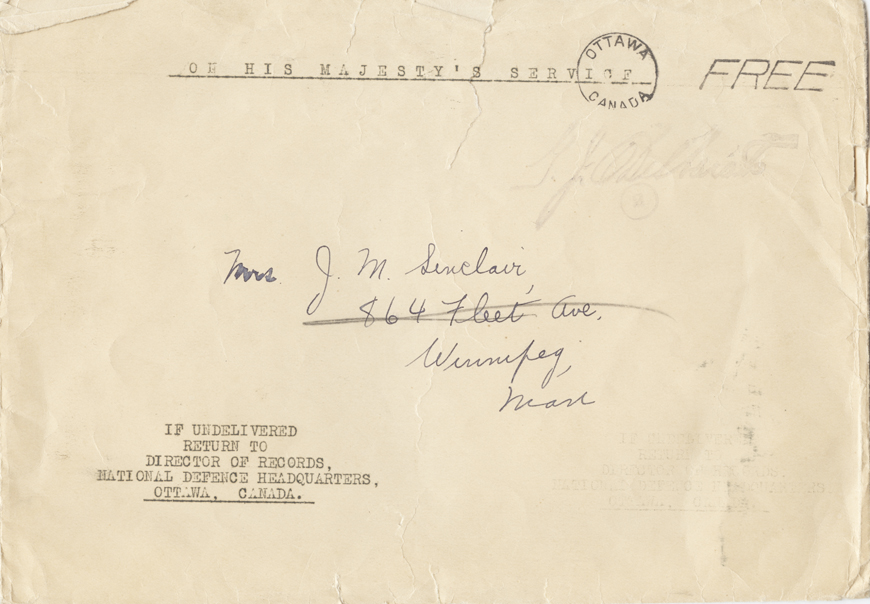 ON HIS MAJESTY'S SERVICE
OTTAWA
CANADA
FREE
Mrs. J. M. Sinclair,
864 Fleet Ave.
Winnipeg,
Man
IF UNDELIVERED
RETURN TO
DIRECTOR OF RECORDS,
NATIONAL DEFENCE HEADQUARTERS,
OTTAWA, CANADA.